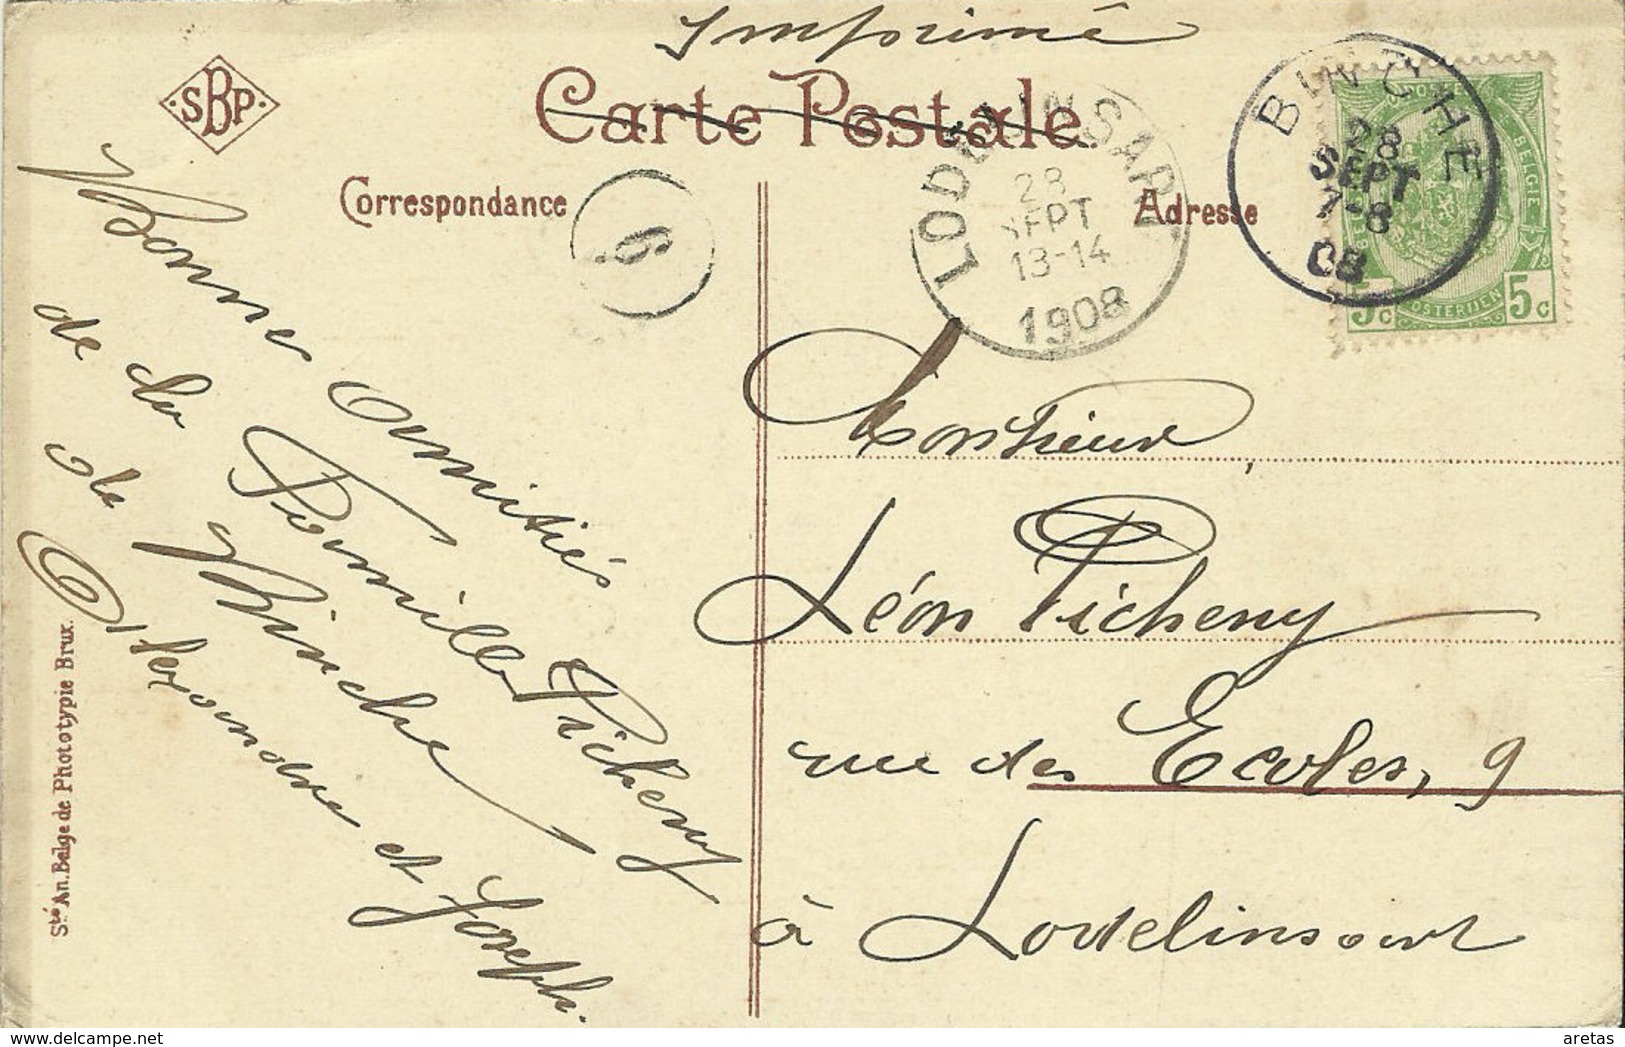 Imprimé
Carte Postale
SBP
Correspondance
Adresse
6
LODELINSART
28
SEPT
13-14
1908
BINCHE
28
SEPT
7-8
08
BELGIE
POSTERIJEN
5c 5c
Bonnes amitiés
de la Famille Picheny
de Binche
Alexandre et Joseph.
Monsieur,
Léon Picheny
rue des Ecoles, 9
à Lodelinsart
Sté An. Belge de Phototypie Brux.
www.delcampe.net
aretas